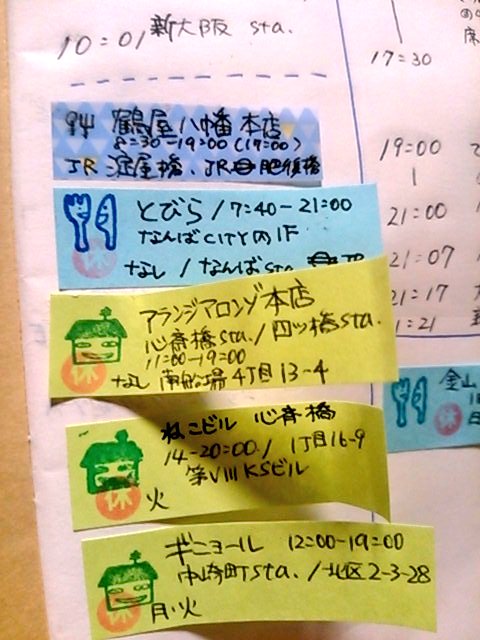 10:01 新大阪 sta.
鶴屋八幡 本店
8:30-19:00 (17:00)
JR 淀屋橋、JR 肥後橋
とびら / 7:40-21:00
なんば CITY内 1F
なし / なんば sta.
アランジアロンゾ本店
心斎橋sta. / 四ツ橋sta.
11:00-19:00
休 なし 南船場4丁目13-4
ねこビル 心斎橋
14-20:00 / 1丁目16-9
第VIII KSビル
休 火
ギニョール 12:00-19:00
中崎町sta. / 北区2-3-28
休 月・火
17:30
19:00
21:00
21:07
21:17
金山